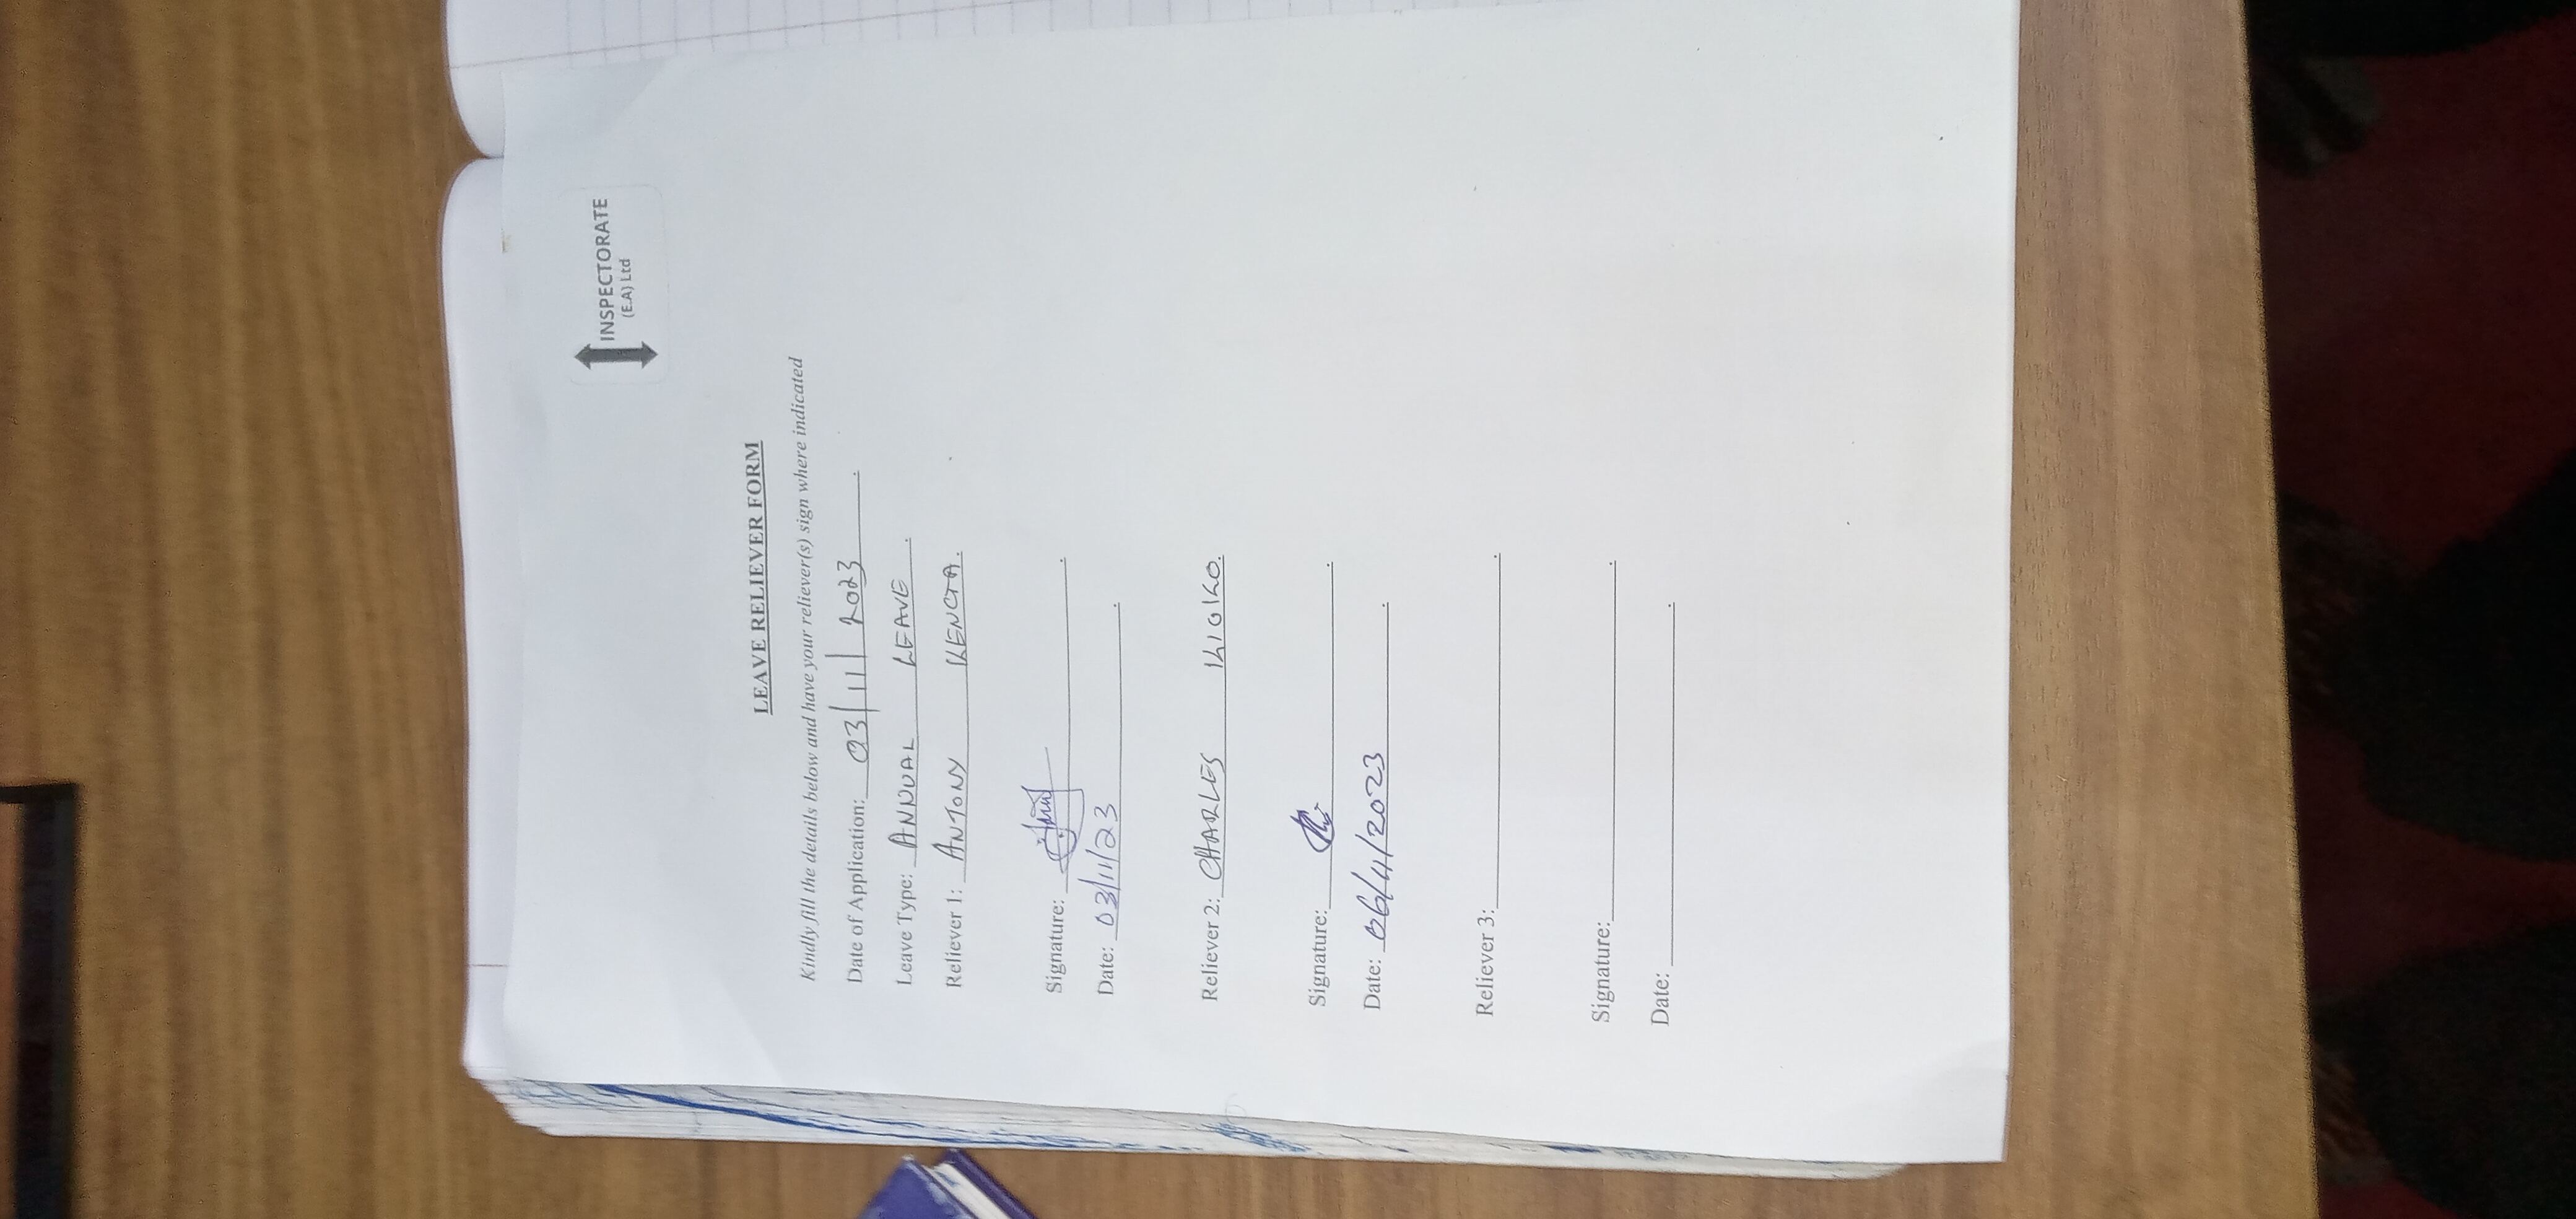 INSPECTORATE
(E.A) Ltd
LEAVE RELIEVER FORM
Kindly fill the details below and have your reliever(s) sign where indicated
Date of Application: 03/11/2023.
Leave Type: ANNUAL LEAVE.
Reliever 1: ANTONY
Signature:
Date: 03/11/23.
Reliever 2: CHARLES KIOKO.
Signature:
Date: 06/11/2023.
Reliever 3:
Signature:
Date: